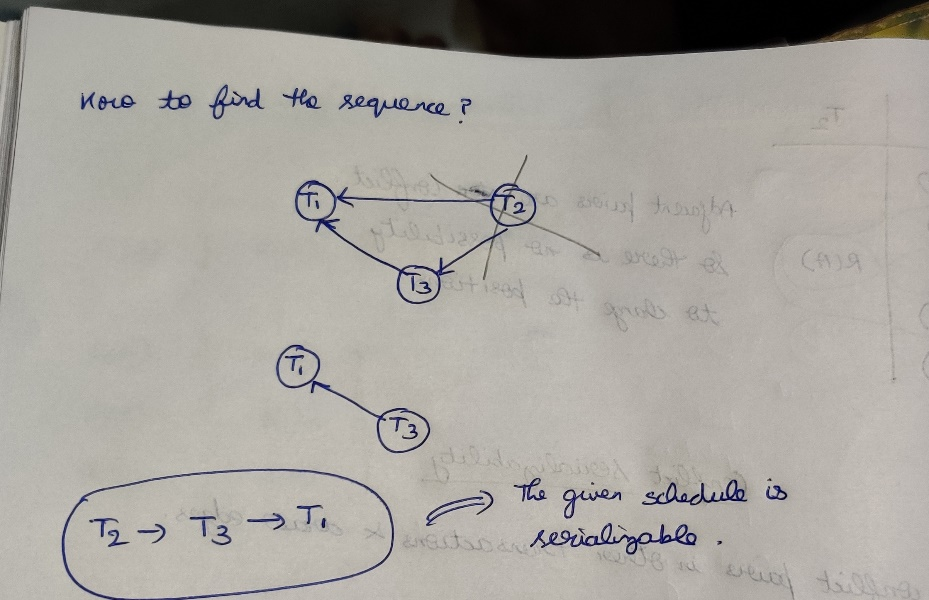 How to find the sequence?
T1 T2
T3
T1
T3
T2 → T3 → T1
The given schedule is
serializable.